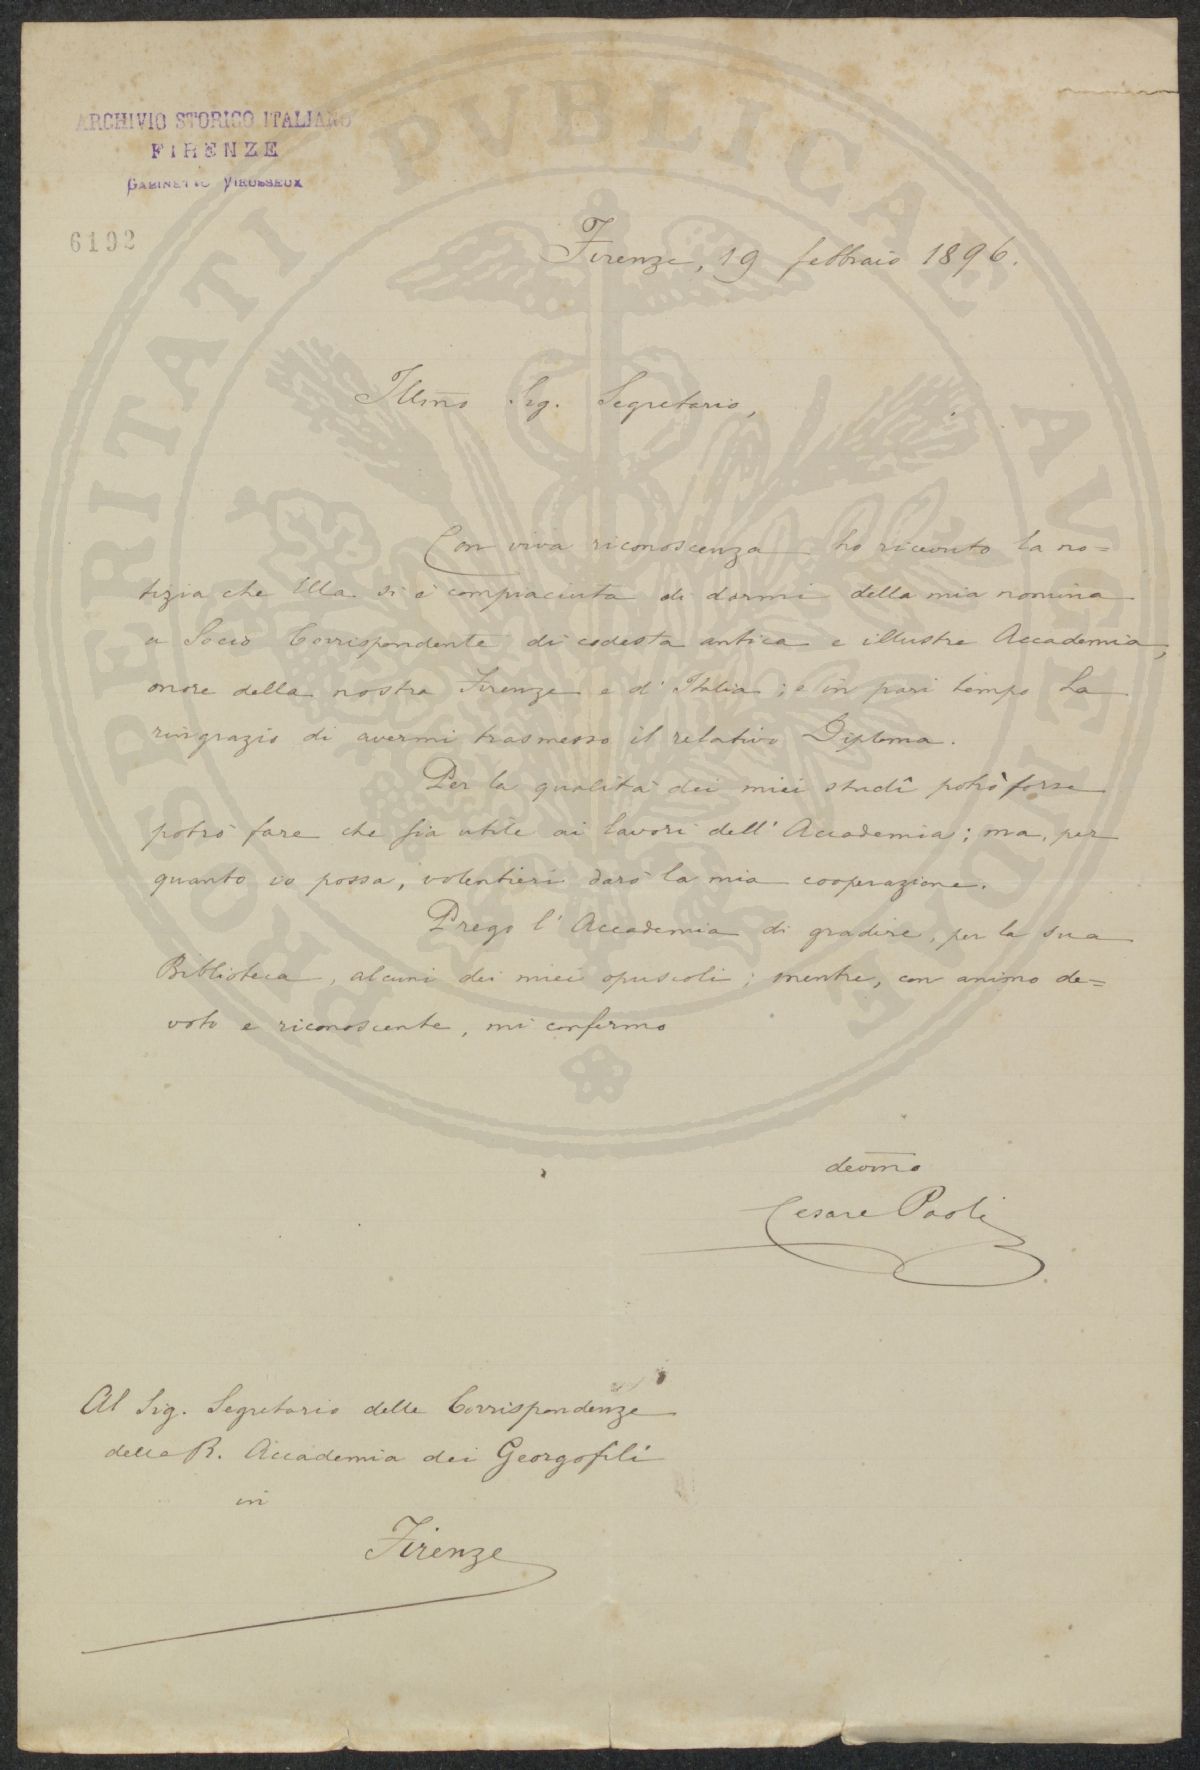 ARCHIVIO STORICO ITALIANO
FIRENZE
GABINETTO VIEUSSEUX
6192
PROSPERITATI PVBLICAE AVGENDAE
Firenze, 19 febbraio 1896.
Illmo Sig. Segretario,
Con viva riconoscenza ho ricevuto la no=
tizia che Ella si è compiaciuta di darmi della mia nomina
a Socio Corrispondente di codesta antica e illustre Accademia,
onore della nostra Firenze e d'Italia; e in pari tempo La
ringrazio di avermi trasmesso il relativo Diploma.
Per la qualità dei miei studî potrò forse
potrò fare che sia utile ai lavori dell'Accademia; ma, per
quanto io possa, volentieri darò la mia cooperazione.
Prego l'Accademia di gradire, per la sua
Biblioteca, alcuni dei miei opuscoli; mentre, con animo de=
voto e riconoscente, mi confermo
devmo
Cesare Paoli
Al Sig. Segretario delle Corrispondenze
della R. Accademia dei Georgofili
in
Firenze